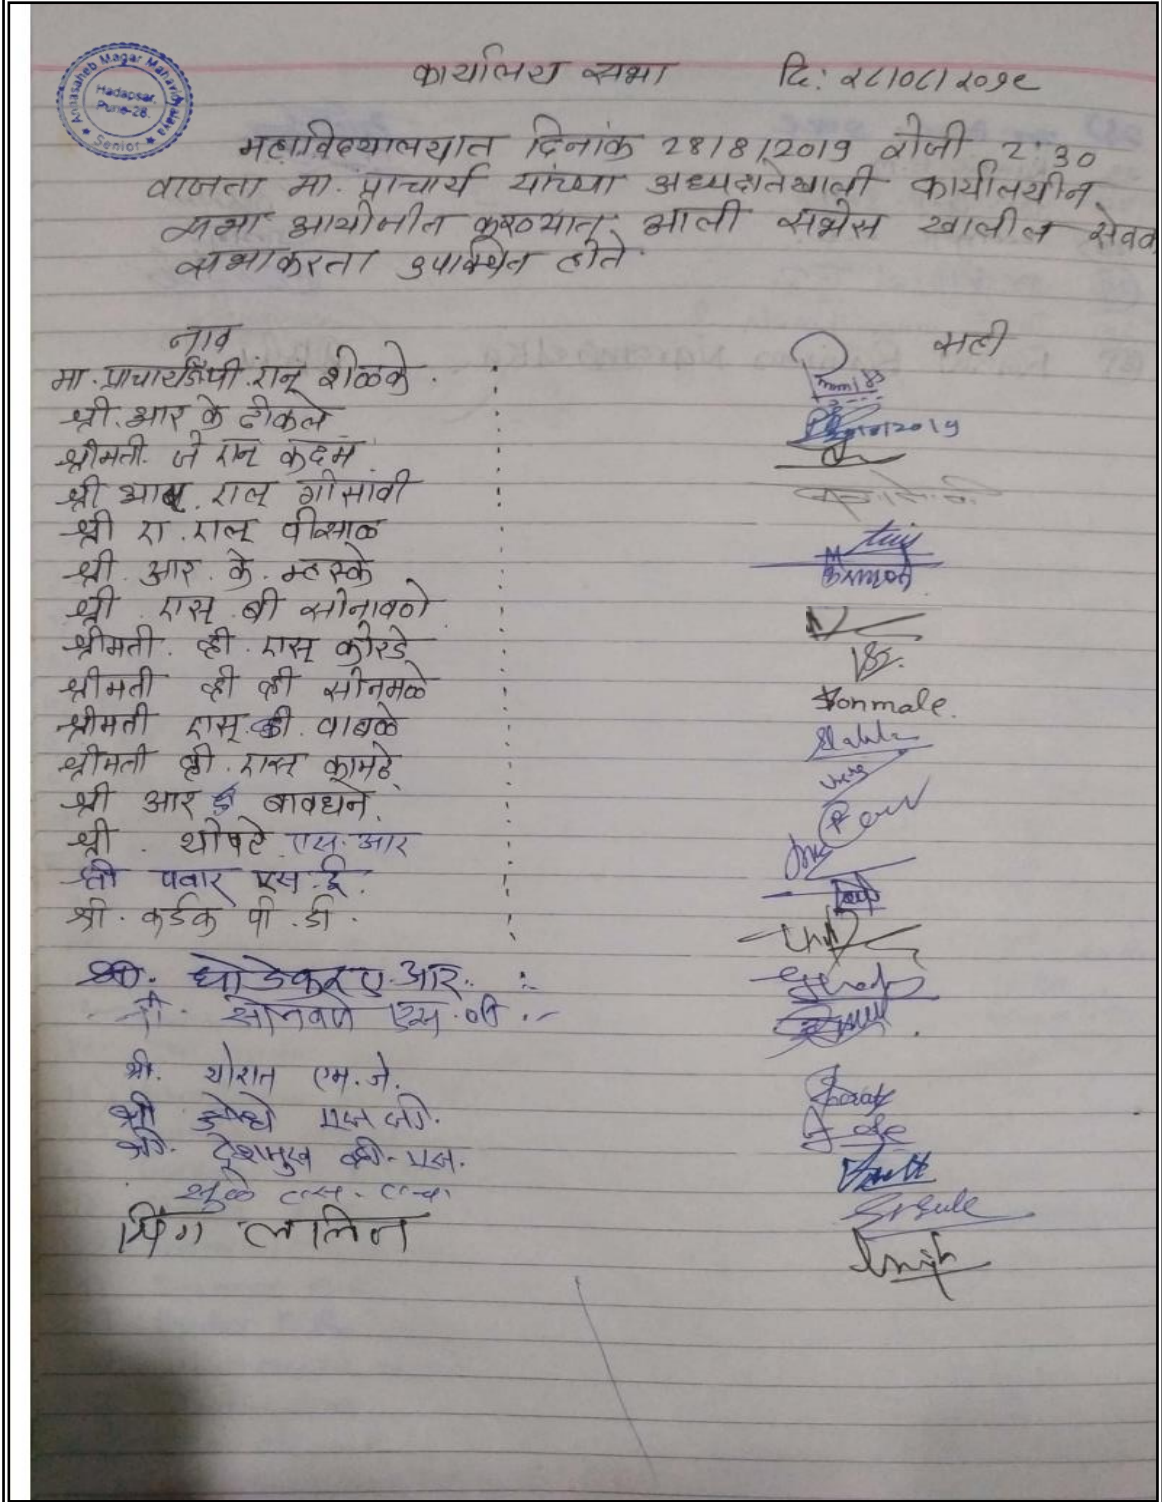 Annasaheb Magar Mahavidyalaya
Hadapsar,
Pune-28.
★ Senior ★
कार्यालय सभा दि: २८/०८/२०१९
महाविद्यालयात दिनांक 28/8/2019 रोजी 2:30
वाजता मा. प्राचार्य यांच्या अध्यक्षतेखाली कार्यालयीन
सभा आयोजीत करण्यात आली सभेस खालील सेवक
सभाकरता उपस्थित होते
नाव सही
मा. प्राचार्य पी. एन् शेळके :
श्री. आर के ढोकले :
2019
श्रीमती. जे एन् कदम :
श्री आर. एल् गोसावी :
श्री ए. एल् पीसाळ :
श्री. आर. के. म्हस्के :
श्री. एस्. बी सोनावणे :
श्रीमती. व्ही. एस् कोरडे :
श्रीमती व्ही व्ही सोनमळे : Sonmale.
श्रीमती एस्. व्ही. वाबळे :
श्रीमती व्ही. एस् कामठे :
श्री आर डी बावधने :
श्री. थोपटे एस. आर :
श्री पवार एस. ई. :
श्री. कर्डक पी. डी. :
श्री. घोडेकर ए. आर. :-
श्री. सोनवणे एस. :-
श्री. थोरात एम. जे. Thorat
श्री
श्री. देशमुख व्ही. एस.
सुळे
ललित